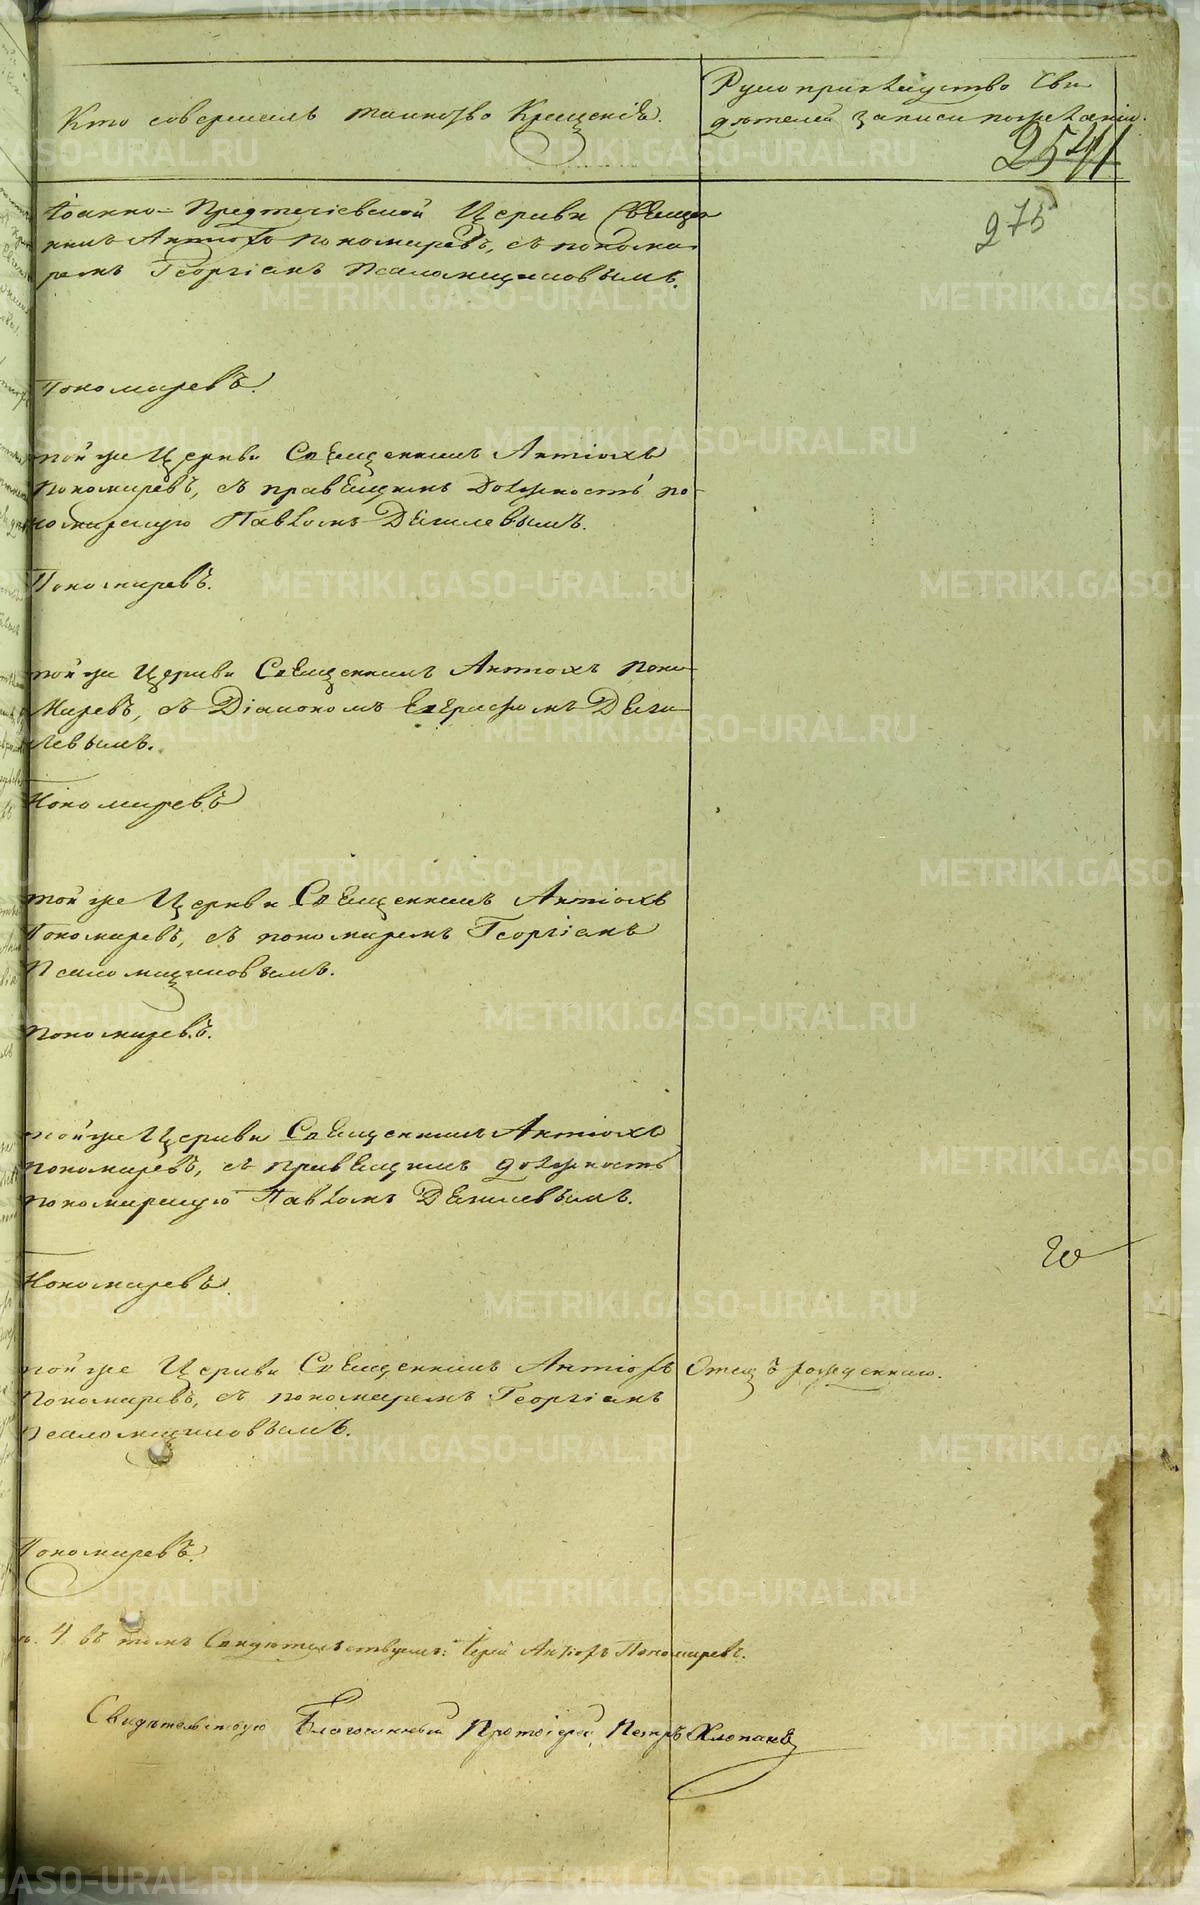 Кто совершалъ таинство Крещенія.
Рукоприкладство сви-
дѣтелей записи по желанію.
254
275
Іоанно-Предтечіевской Церкви Священ-
никъ Антіохъ Пономаревъ, съ понома-
ремъ Георгіемъ Псаломщиковымъ.
Пономаревъ.
той же Церкви Священникъ Антіохъ
Пономаревъ, съ правящимъ должность по-
номарскую Павломъ Дягилевымъ.
Пономаревъ.
той же Церкви Священникъ Антіохъ Поно-
маревъ, съ Діакономъ Дяги-
левымъ.
Пономаревъ
той же Церкви Священникъ Антіохъ
Пономаревъ, съ пономаремъ Георгіемъ
Псаломщиковымъ.
Пономаревъ.
той же Церкви Священникъ Антіохъ
Пономаревъ, съ правящимъ должность
пономарскую Павломъ Дягилевымъ.
Пономаревъ.
той же Церкви Священникъ Антіохъ
Пономаревъ, съ пономаремъ Георгіемъ
Псаломщиковымъ.
Отецъ рожденнаго.
Пономаревъ.
4. въ томъ Свидѣтельствуемъ: Іерей Антіохъ Пономаревъ.
Свидѣтельствую Благочинный Протоіерей Петръ
METRIKI.GASO-URAL.RU